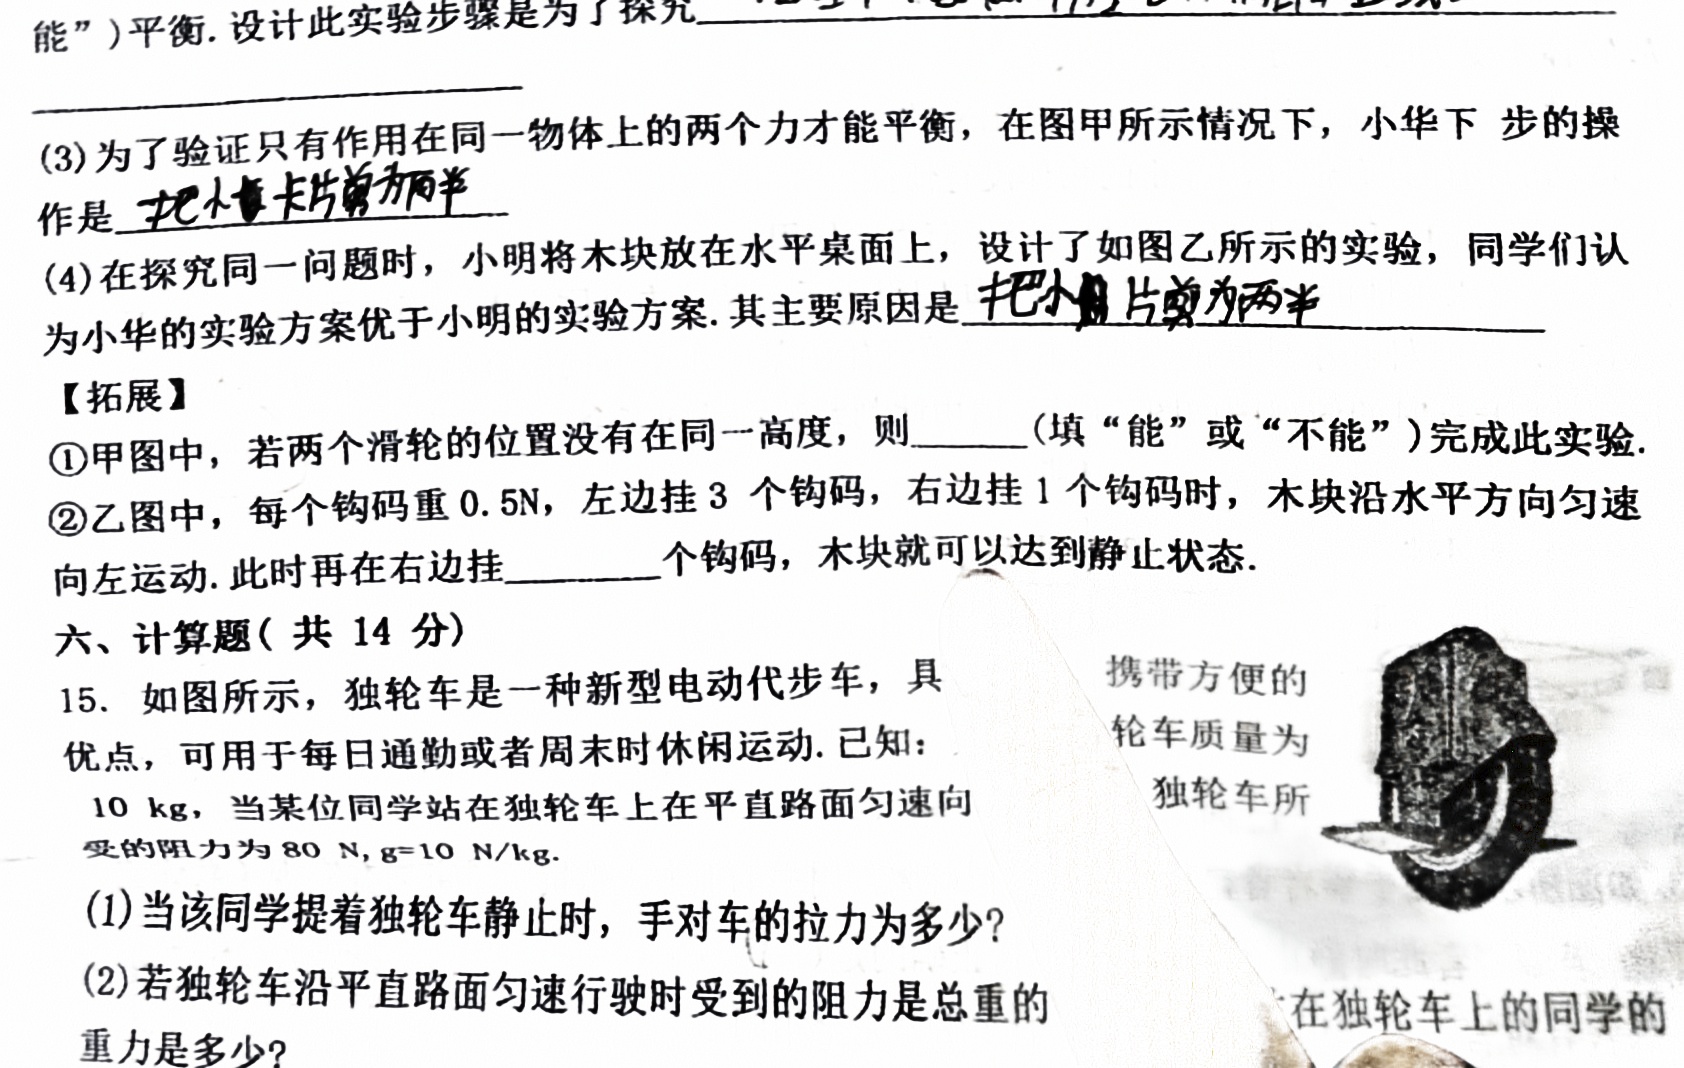 能”)平衡.设计此实验步骤是为了探究
(3)为了验证只有作用在同一物体上的两个力才能平衡，在图甲所示情况下，小华下 步的操
作是 把小卡片剪为两半
(4)在探究同一问题时，小明将木块放在水平桌面上，设计了如图乙所示的实验，同学们认
为小华的实验方案优于小明的实验方案.其主要原因是 把小 片剪为两半
【拓展】
①甲图中，若两个滑轮的位置没有在同一高度，则______(填“能”或“不能”)完成此实验.
②乙图中，每个钩码重0.5N，左边挂3 个钩码，右边挂1个钩码时，木块沿水平方向匀速
向左运动.此时再在右边挂________个钩码，木块就可以达到静止状态.
六、计算题( 共 14 分)
15. 如图所示，独轮车是一种新型电动代步车，具 携带方便的
优点，可用于每日通勤或者周末时休闲运动.已知： 轮车质量为
10 kg，当某位同学站在独轮车上在平直路面匀速向 独轮车所
受的阻力为 80 N, g=10 N/kg.
(1)当该同学提着独轮车静止时，手对车的拉力为多少?
(2)若独轮车沿平直路面匀速行驶时受到的阻力是总重的 在独轮车上的同学的
重力是多少?